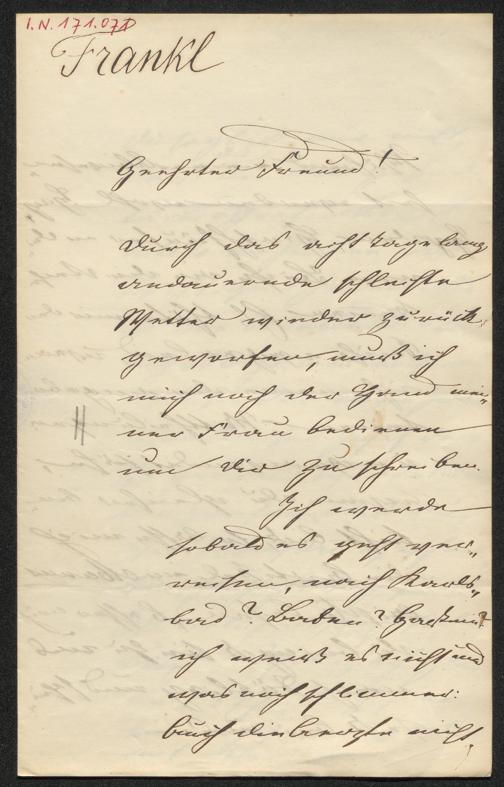 I.N. 171.071
Frankl
Geehrter Freund!
Durch das acht Tage lang
andauernde schlechte
Wetter wieder zurück
geworfen, muß ich
mich noch der Hand mei-
ner Frau bedienen
um Dir zu schreiben.
Ich werde
sobald es geht ver-
reisen, nach Karls-
bad? Baden? Gastein?
ich weiß es nicht und
was noch schlimmer:
auch die Aerzte nicht,